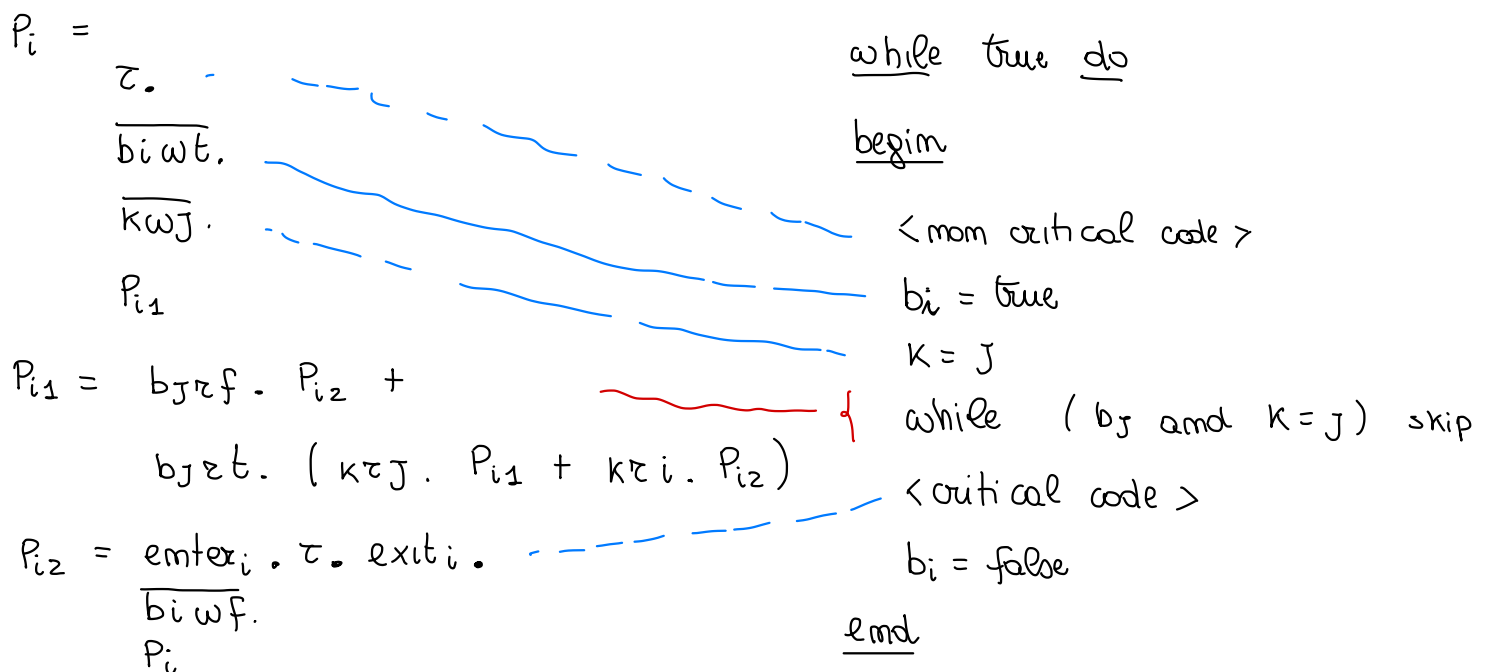 Pi =
τ.
biwt.
kwj.
Pi1
Pi1 = bjrf. Pi2 +
bjrt. (krj. Pi1 + kri. Pi2)
Pi2 = enteri. τ. exiti.
biwf.
Pi
while true do
begin
<non critical code>
bi = true
k = j
while (bj and k = j) skip
<critical code>
bi = false
end